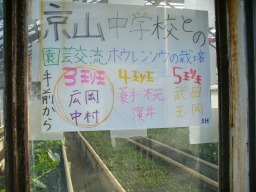 京山中学校との
園芸交流 ホウレンソウの栽培
手前から
3班 4班 5班
広岡 養手木元 武田
中村 濱井 生岡
SH